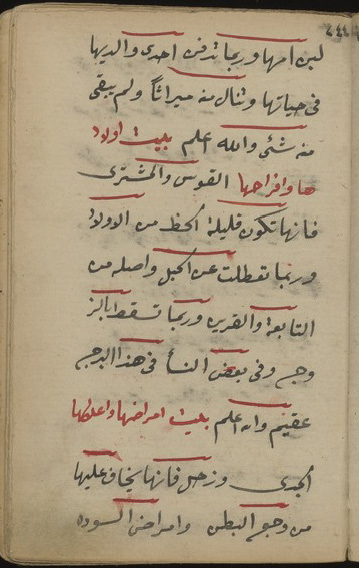 لبن امها وربما تدفن احدى والديها
فى حياتها وتنال منه ميراثاً ولم يبقى
منه شئى والله اعلم بيت اولاد
ها وافراحها القوس والمشترى
فانها تكون قليلة الحظ من الاولاد
وربما تعطلت عن الحبل واصله من
التابعة والقرينه وربما تسقط بالز
وجه وفى بعض النسأ فى هذا البرج
عقيم والله اعلم بيت امراضها واعلالها
الجدى وزحل فانها يخاف عليها
من وجع البطن وامراض السوده